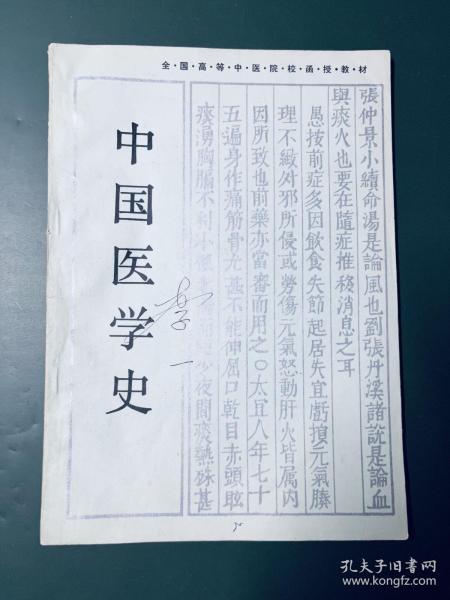 全·国·高·等·中·医·院·校·函·授·教·材
中国医学史
李一
張仲景小續命湯是論風也劉張丹溪諸說是論血
與痰火也要在隨症推移消息之耳
愚按前症多因飲食失節起居失宜虧損元氣腠
理不緻外邪所侵或勞傷元氣怒動肝火皆属内
因所致也前藥亦當審而用之○太宜人年七十
五遍身作痛筋骨尤甚不能伸屈口乾目赤頭眩
痰湧胸膈不利小
夜間痰熱殊甚
孔夫子旧书网
www.kongfz.com